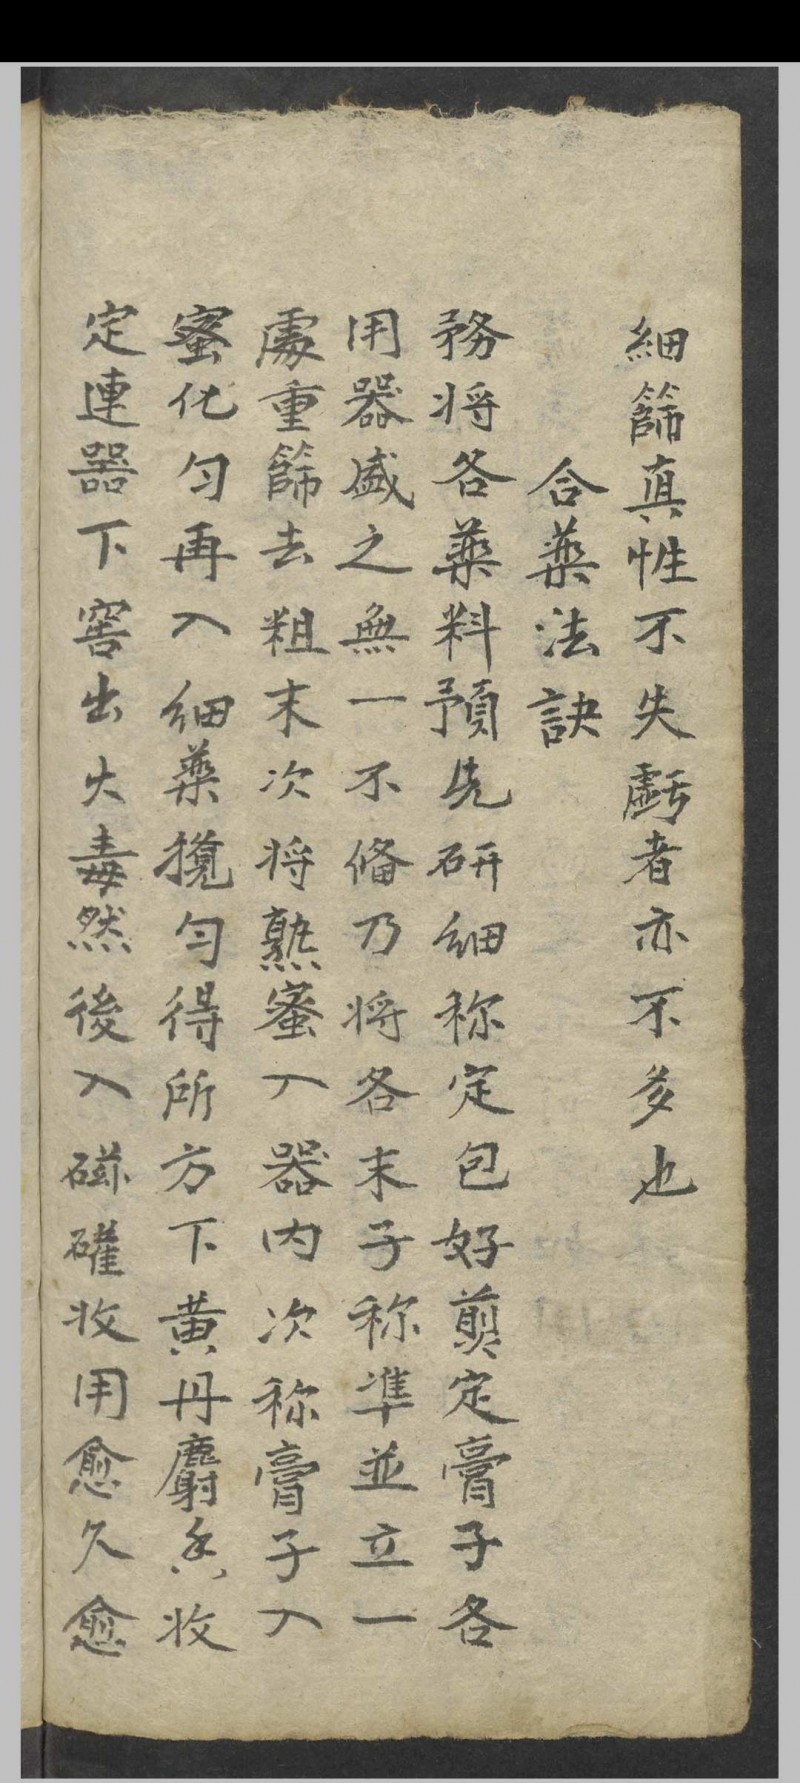 細篩真性不失虧者亦不多也
合藥法訣
務將各藥料預先研細称定包好煎定膏子各
用器盛之無一不備乃將各末子称準並立一
處重篩去粗末次將熟蜜入器內次称膏子入
蜜化匀再入細藥攪匀得所方下黄丹麝香收
定連器下窖出火毒然後入磁礶收用愈久愈